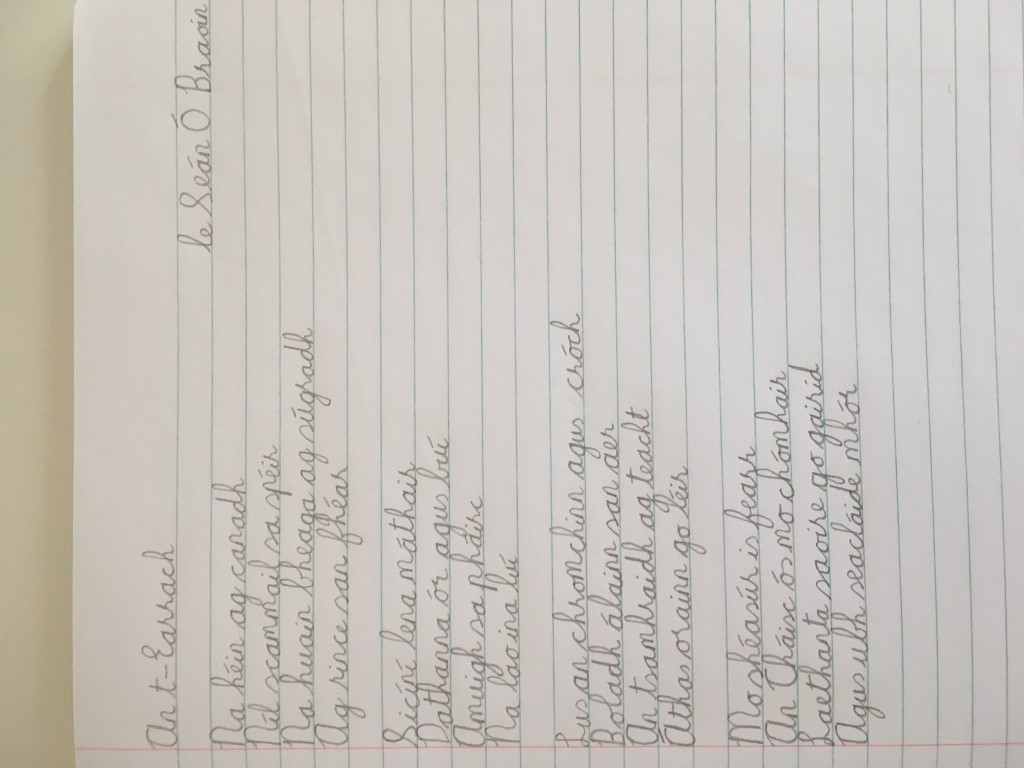 An t-Earrach
le Seán Ó Braoin
Na héin ag canadh
Níl scamhaif sa spéir
Na huain bheaga ag súgradh
Ag rince san fhéar
Sicíní lena máthair
Dathanna ór agus buí
Amuigh sa pháirc
Na laoi ina luí
Lus an chromchinn agus cróch
Boladh álainn san aer
An tsamhraidh ag teacht
Áthas orainn go léir
Mo shéasúr is fearr
An Cháisc ós mo chomhair
Laethanta saoire go gairid
Agus ubh seacláide mhór